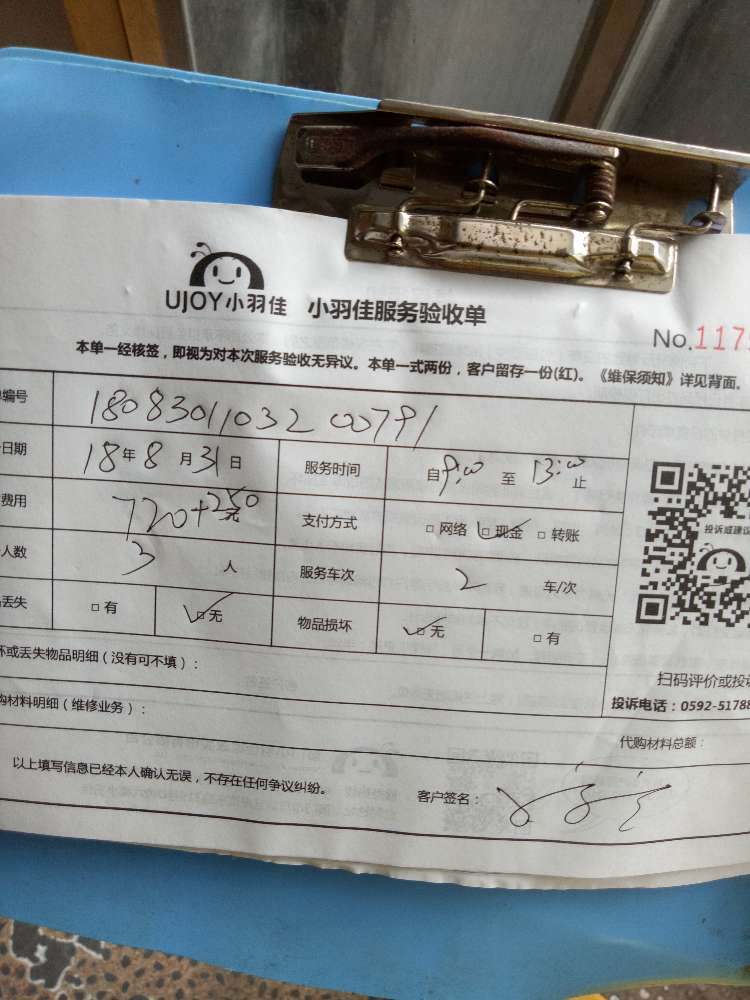 UJOY小羽佳 小羽佳服务验收单
No.117
本单一经核签，即视为对本次服务验收无异议。本单一式两份，客户留存一份(红)。《维保须知》详见背面。
编号 1808301103200791
日期 18年8月31日 服务时间 自9:00至13:00止
费用 720+250元 支付方式 □网络 □现金 □转账
人数 3人 服务车次 2车/次
丢失 □有 □无 物品损坏 □无 □有
坏或丢失物品明细（没有可不填）：
购材料明细（维修业务）：
投诉或建议
扫码评价或投诉
投诉电话：0592-5178
代购材料总额：
以上填写信息已经本人确认无误，不存在任何争议纠纷。 客户签名：